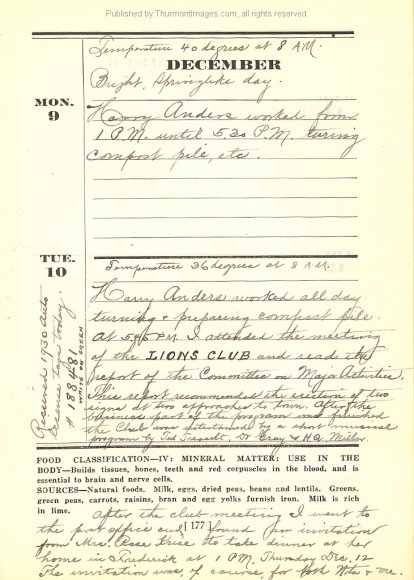 Published by ThurmontImages.com, all rights reserved.
Temperature 40 degrees at 8 A.M.
DECEMBER
Bright, Springlike day.
MON.
9
Harry Anders worked from
1 P.M. until 5.30 P.M. turing
compost pile, etc.
TUE.
10
Temperature 36 degrees at 8 A.M.
Received 1930 auto
license tags today.
# 188-481
WHITE ON GREEN
Harry Anders worked all day
turning + preparing compost pile.
At 5.45 P.M. I attended the meeting
of the LIONS CLUB and read the
report of the Committee on Major Activities.
This report recommended the erection of two
signs at two approaches to town. After the
business part of the program was finished
the Club was entertained by a short musical
program by Dr. Gray + H.A. Miller.
FOOD CLASSIFICATION—IV: MINERAL MATTER: USE IN THE
BODY—Builds tissues, bones, teeth and red corpuscles in the blood, and is
essential to brain and nerve cells.
SOURCES—Natural foods. Milk, eggs, dried peas, beans and lentils. Greens,
green peas, carrots, raisins, bran and egg yolks furnish iron. Milk is rich
in lime.
After the club meeting I went to
the post office and found an invitation
[ 177 ]
from Mrs. Krise to take dinner at her
home in Frederick at 1 P.M. Thursday Dec. 12
The invitation was of course, for both Mrs + me.